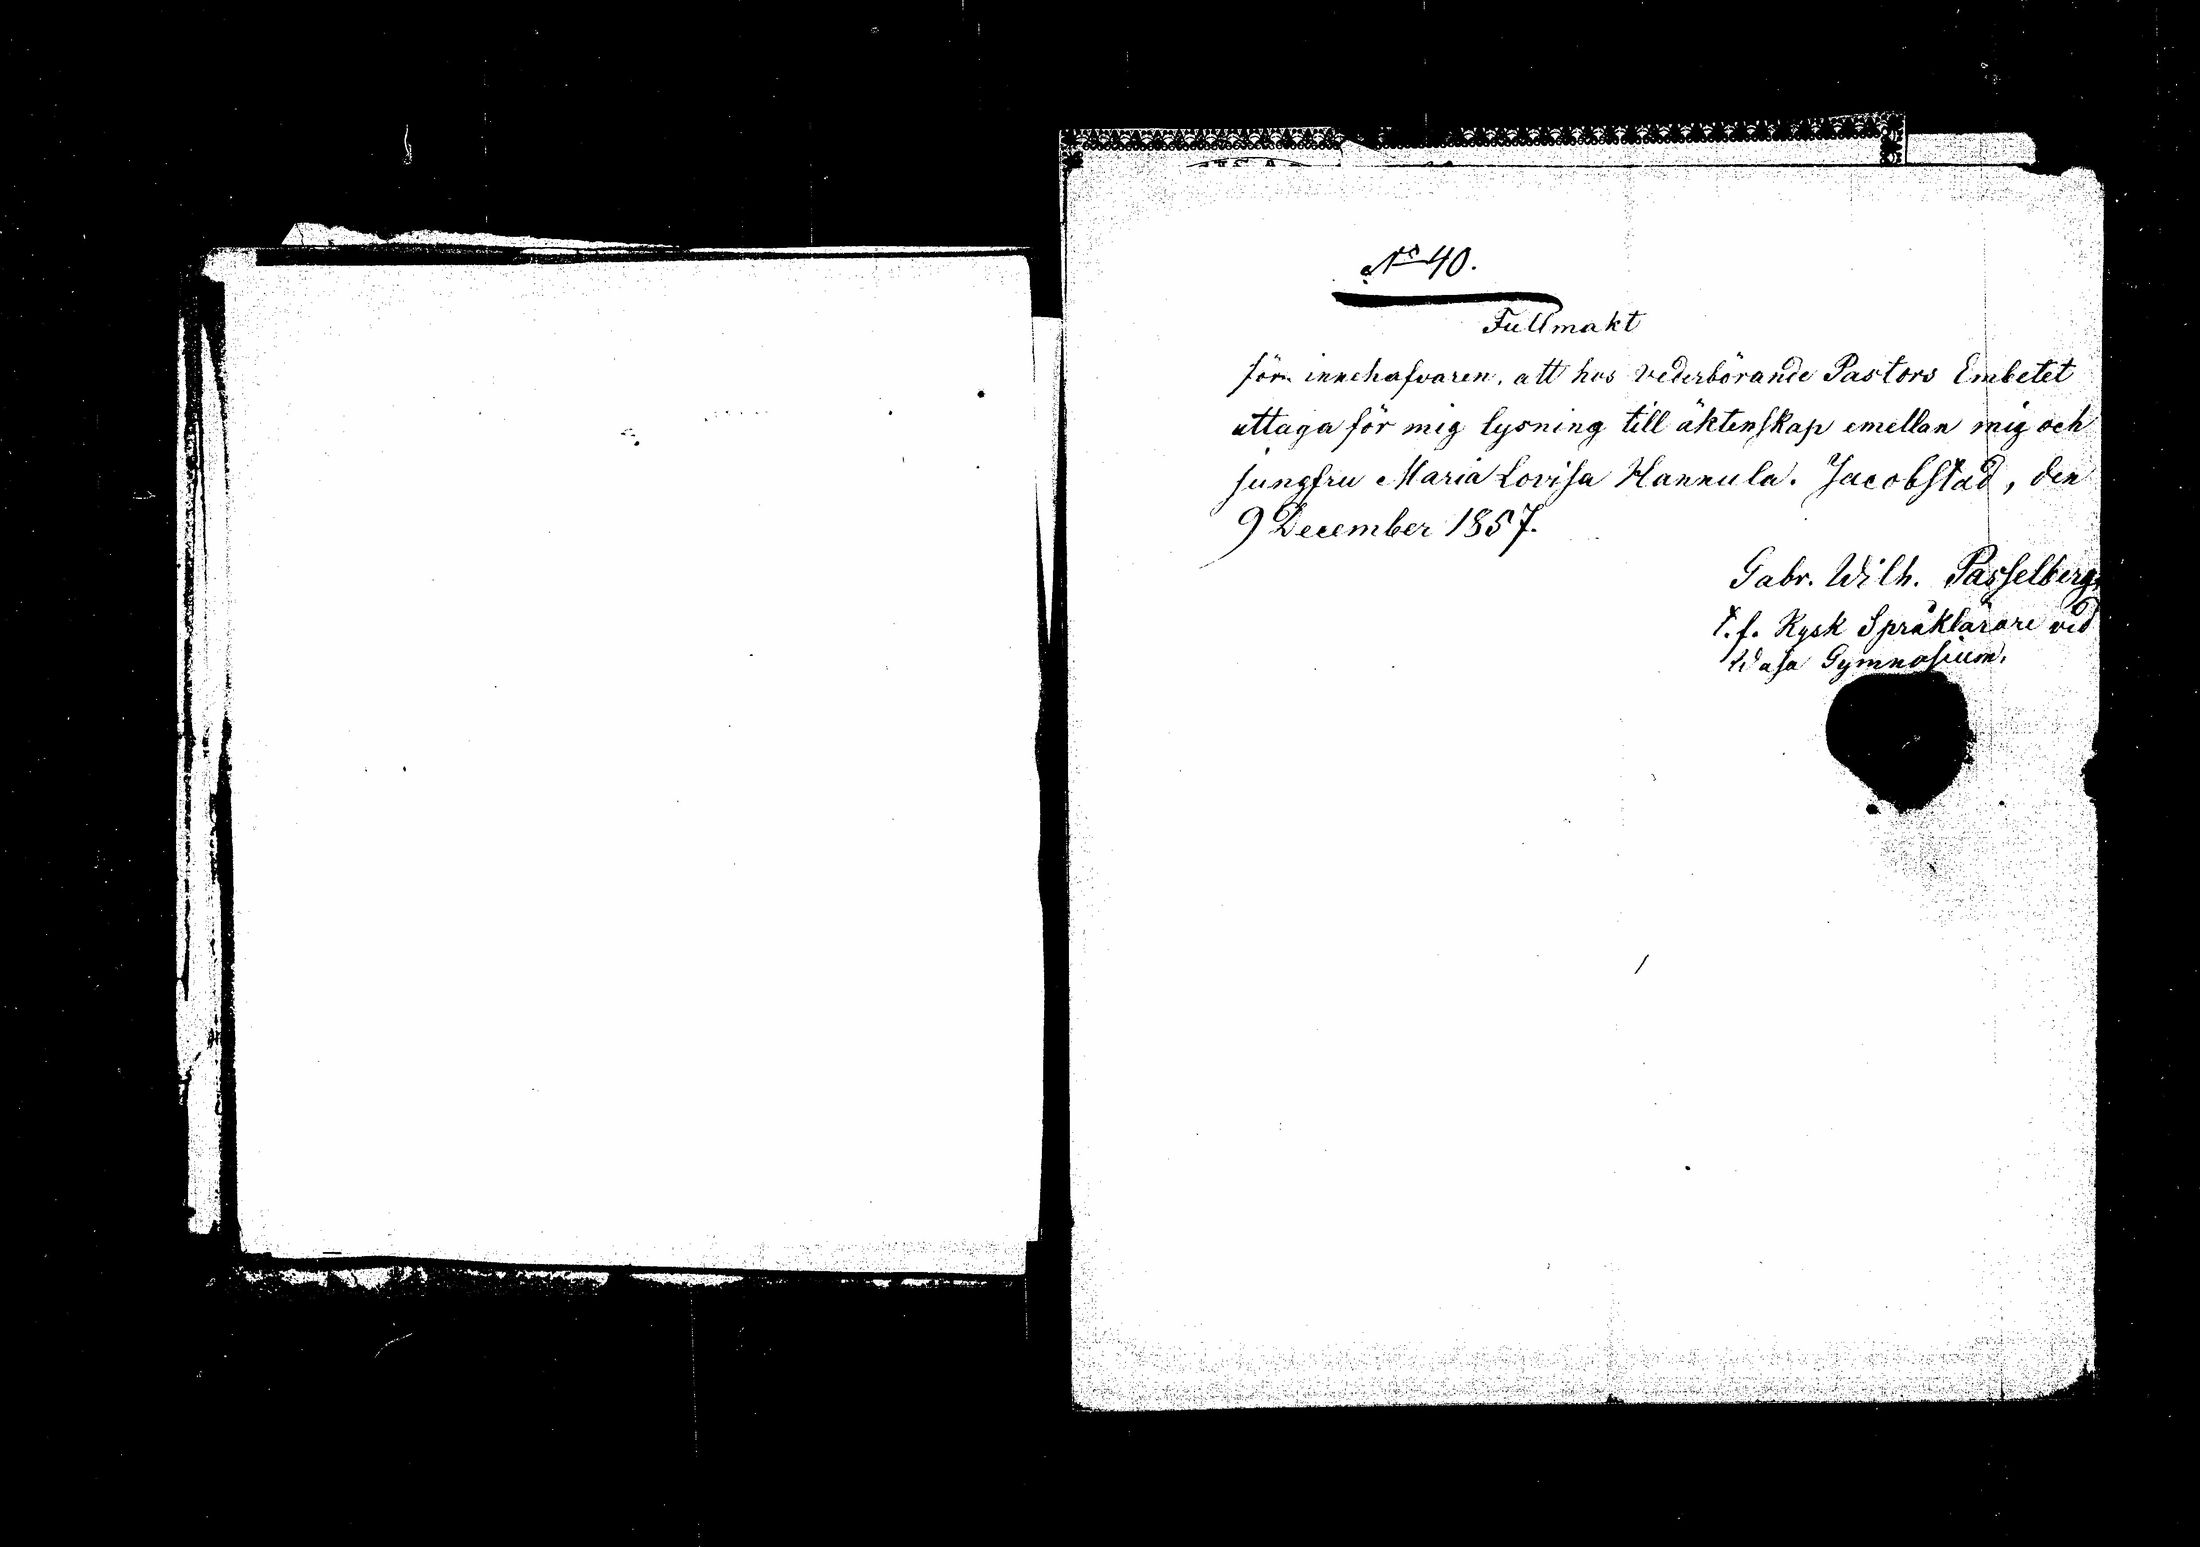 No 40.
Fullmakt
för innehafvaren, att hos vederbörande Pastors Embetet
uttaga för mig lysning till äktenskap emellan mig och
jungfru Maria Lovisa Hannula. Jacobstad, den
9 December 1857.
Gabr. Wilh. Passelberg,
t.f. Rysk Språklärare vid
Wasa Gymnasium.